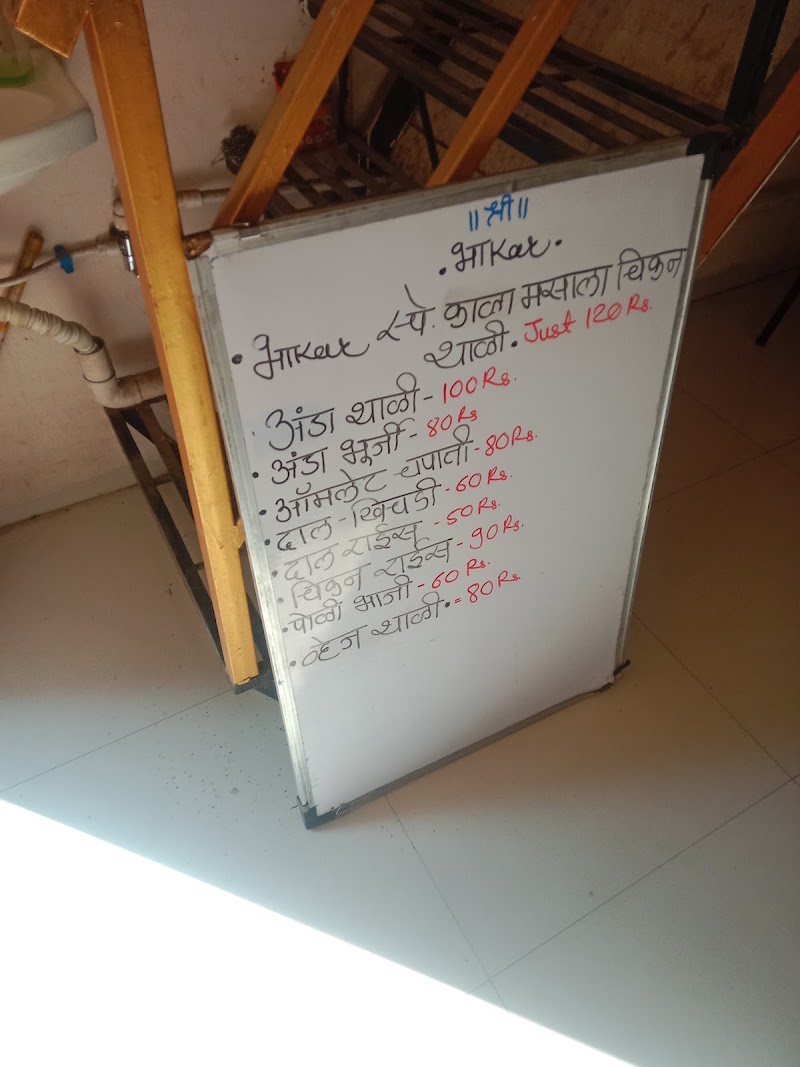 ॥ श्री ॥
• भाKar •
• भाKar स्पे. काळा मसाला चिकन
थाळी. Just 120 Rs.
• अंडा थाळी - 100 Rs.
• अंडा भूर्जी - 80 Rs
• ऑमलेट चपाती - 80 Rs.
• दाल - खिचडी - 60 Rs.
• दाल राईस - 50 Rs.
• चिकन राईस - 90 Rs.
• पोळी भाजी - 60 Rs.
• व्हेज थाळी • = 80 Rs.